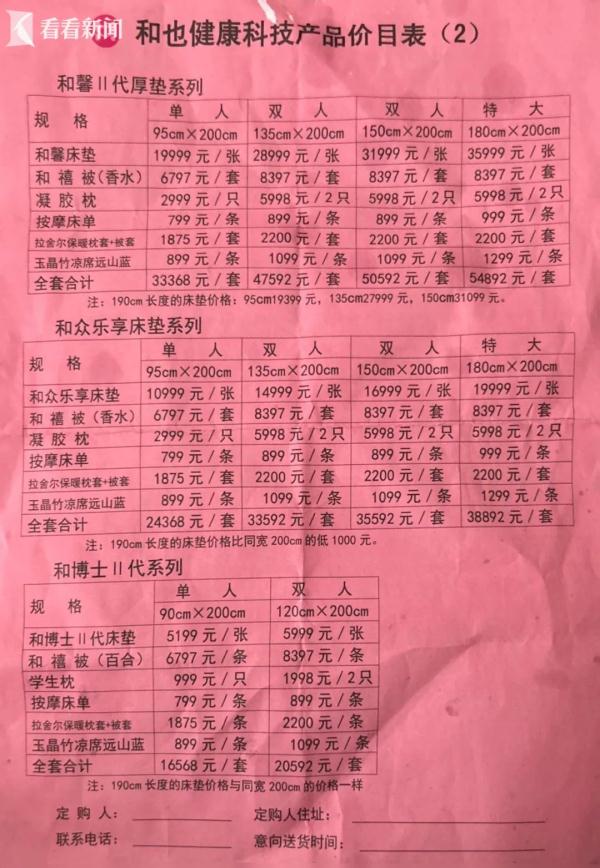 看看新闻
和也健康科技产品价目表（2）
和馨Ⅱ代厚垫系列
规 格 单 人 双 人 双 人 特 大
95cm×200cm 135cm×200cm 150cm×200cm 180cm×200cm
和馨床垫 19999 元/张 28999 元/张 31999 元/张 35999 元/张
和 禧 被（香水） 6797 元/套 8397 元/套 8397 元/套 8397 元/套
凝 胶 枕 2999 元/只 5998 元/2只 5998 元/2只 5998 元/2只
按摩床单 799 元/条 899 元/条 899 元/条 999 元/条
拉舍尔保暖枕套+被套 1875 元/套 2200 元/套 2200 元/套 2200 元/套
玉晶竹凉席远山蓝 899 元/条 1099 元/条 1099 元/条 1299 元/条
全套合计 33368 元/套 47592 元/套 50592 元/套 54892 元/套
注：190cm 长度的床垫价格：95cm19399 元，135cm27999 元，150cm31099 元。
和众乐享床垫系列
规 格 单 人 双 人 双 人 特 大
95cm×200cm 135cm×200cm 150cm×200cm 180cm×200cm
和众乐享床垫 10999 元/张 14999 元/张 16999 元/张 19999 元/张
和 禧 被（香水） 6797 元/套 8397 元/套 8397 元/套 8397 元/套
凝 胶 枕 2999 元/只 5998 元/2只 5998 元/2只 5998 元/2只
按摩床单 799 元/条 899 元/条 899 元/条 999 元/条
拉舍尔保暖枕套+被套 1875 元/套 2200 元/套 2200 元/套 2200 元/套
玉晶竹凉席远山蓝 899 元/条 1099 元/条 1099 元/条 1299 元/条
全套合计 24368 元/套 33592 元/套 35592 元/套 38892 元/套
注：190cm 长度的床垫价格比同宽 200cm 的低 1000 元。
和博士Ⅱ代系列
规 格 单 人 双 人
90cm×200cm 120cm×200cm
和博士Ⅱ代床垫 5199 元/张 5999 元/张
和 禧 被（百合） 6797 元/条 8397 元/条
学生枕 999 元/只 1998 元/2只
按摩床单 799 元/条 899 元/条
拉舍尔保暖枕套+被套 1875 元/条 2200 元/条
玉晶竹凉席远山蓝 899 元/条 1099 元/条
全套合计 16568 元/套 20592 元/套
注：190cm 长度的床垫价格与同宽 200cm 的价格一样
定 购 人： 定购人住址：
联系电话： 意向送货时间：